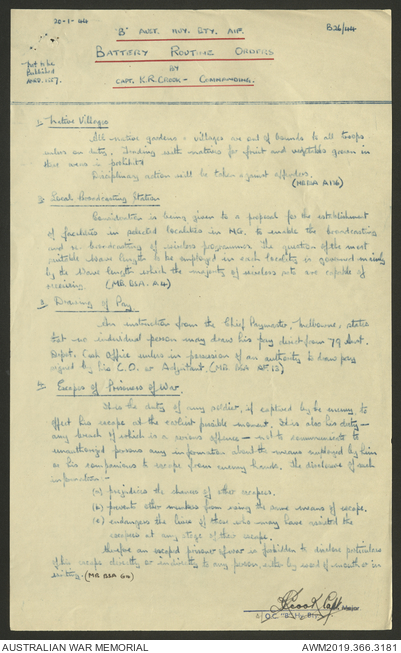 20-1-44
"B" Aust. Hvy. Bty. AIF.
B26/44
BATTERY ROUTINE ORDERS
BY
CAPT. K.R. CROOK - COMMANDING.
Not to be
Published
1. Native Villages
All native gardens & villages are out of bounds to all troops
unless on duty. Trading with natives for fruit and vegetables grown in
these areas is prohibited
Disciplinary action will be taken against offenders.
(MB BSA A116)
2. Local Broadcasting Station
Consideration is being given to a proposal for the establishment
of facilities in selected localities in NG. to enable the broadcasting
and re-broadcasting of wireless programmes. The question of the most
suitable wave length to be employed in each locality is governed mainly
by the wave length which the majority of wireless sets are capable of
receiving. (MB. BSA. A4)
3. Drawing of Pay.
An instruction from the Chief Paymaster, Melbourne, states
that no individual person may draw his pay direct from 79 Aust.
Dept. Cash Office unless in possession of an authority to draw pay
signed by his C.O. or Adjutant. (MB BSA
4. Escapes of Prisoners of War.
It is the duty of any soldier, if captured by the enemy to
effect his escape at the earliest possible moment. It is also his duty -
any breach of which is a serious offence - not to communicate to
unauthorized persons any information about the means employed by him
or his companions to escape from enemy hands. The disclosure of such
information :-
(a) prejudices the chances of other escapees.
(b) prevent other members from using the same means of escape.
(c) endangers the lives of those who may have assisted the
escapees at any stage of their escape.
Therefore an escaped prisoner of war is forbidden to disclose particulars
of his escape directly or indirectly to any person, either by word of mouth or in
writing. (MB BSA G4)
Crook Capt
Major
O.C. "B" Hy. Bty.
AUSTRALIAN WAR MEMORIAL
AWM2019.366.3181